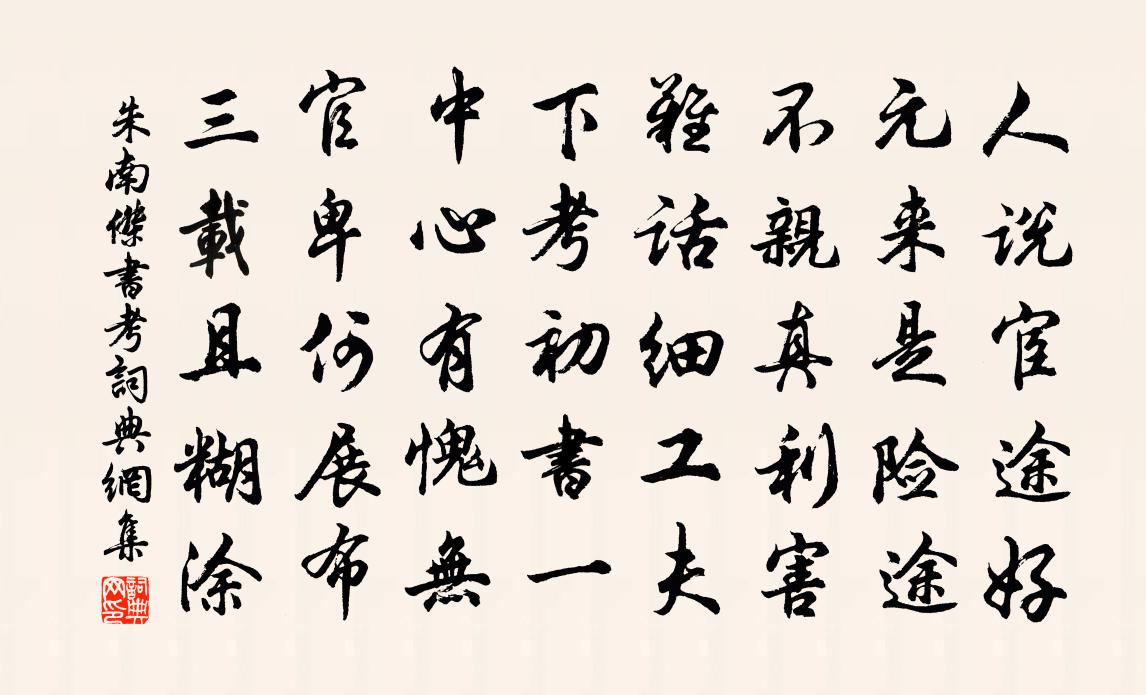 人说官途好
元来是险途
不親真利害
難話细工夫
下考初書一
中心有愧無
官卑何展布
三載且糊涂
朱南傑書考詞典網集
詞典网印